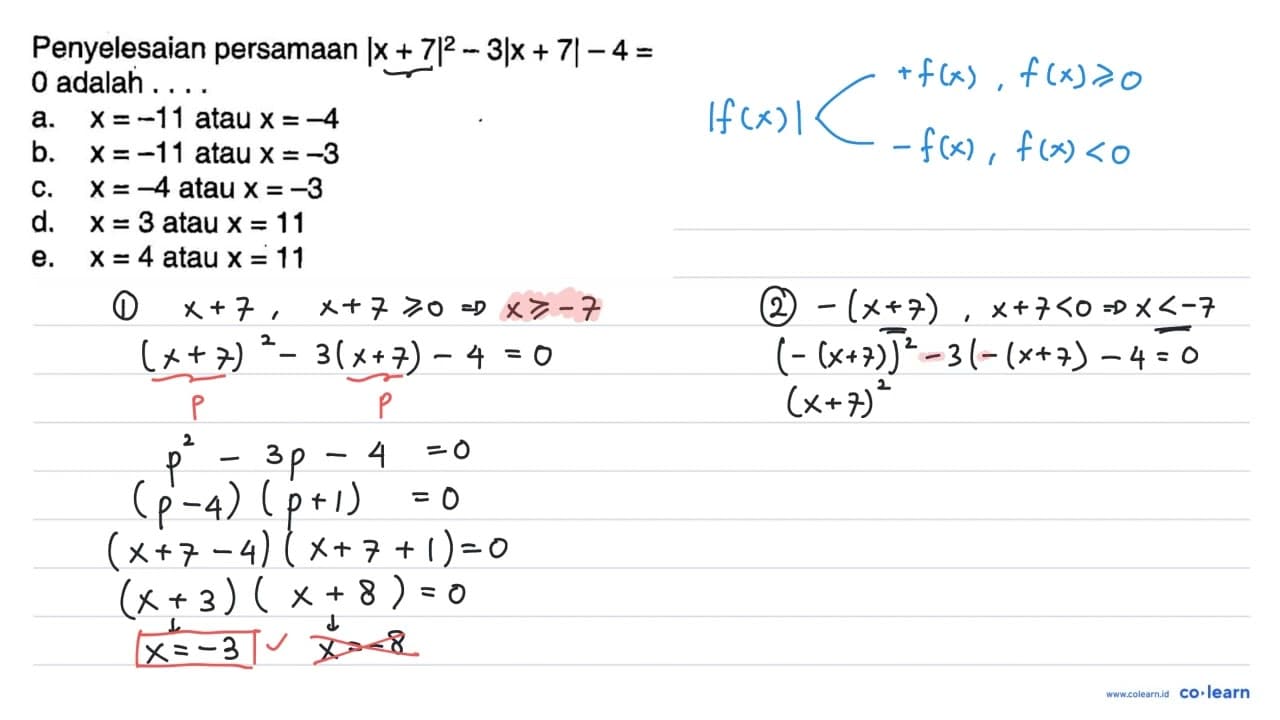 Penyelesaian persamaan |x + 7|² – 3|x + 7| – 4 =
0 adalah . . . .
a. x = –11 atau x = –4
b. x = –11 atau x = –3
c. x = –4 atau x = –3
d. x = 3 atau x = 11
e. x = 4 atau x = 11
|f(x)| < +f(x) , f(x) ≥ 0
- f(x) , f(x) < 0
① x + 7 , x + 7 ≥ 0 ⇒ x ≥ -7
(x + 7)² - 3(x + 7) - 4 = 0
p p
p² - 3p - 4 = 0
(p - 4) (p + 1) = 0
(x + 7 - 4) (x + 7 + 1) = 0
(x + 3) (x + 8) = 0
↓ ↓
x = -3 ✓ x = -8
② - (x + 7) , x + 7 < 0 ⇒ x < -7
(- (x+7))² - 3(- (x+7) - 4 = 0
(x+7)²
www.colearn.id co·learn